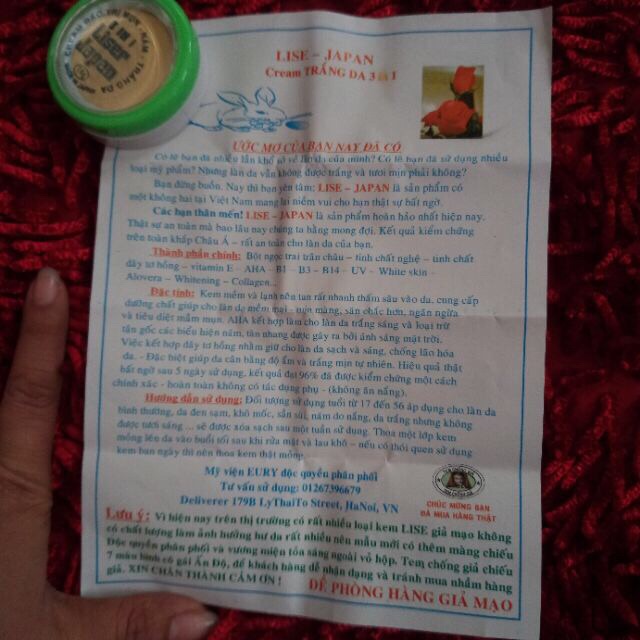 3 IN 1
Lise
Japan
LISE – JAPAN
Cream TRẮNG DA 3 in 1
ƯỚC MƠ CỦA BẠN NAY ĐÃ CÓ
Có lẽ bạn đã nhiều lần khổ sở về làn da của mình? Có lẽ bạn đã sử dụng nhiều
loại mỹ phẩm? Nhưng làn da vẫn không được trắng và tươi mịn phải không?
Bạn đừng buồn. Nay thì bạn yên tâm: LISE – JAPAN là sản phẩm có
một không hai tại Việt Nam mang lại niềm vui cho bạn thật sự bất ngờ.
Các bạn thân mến! LISE – JAPAN là sản phẩm hoàn hảo nhất hiện nay.
Thật sự an toàn mà bao lâu nay chúng ta hằng mong đợi. Kết quả kiểm chứng
trên toàn khắp Châu Á – rất an toàn cho làn da của bạn.
Thành phần chính: Bột ngọc trai trân châu – tinh chất nghệ – tinh chất
dây tơ hồng – vitamin E – AHA – B1 – B3 – B14 – UV - White skin -
Alovera – Whitening – Collagen.
Đặc tính: Kem mềm và lạnh nên tan rất nhanh thấm sâu vào da, cung cấp
dưỡng chất giúp cho làn da mềm mại - mịn màng, săn chắc hơn, ngăn ngừa
và tiêu diệt mầm mụn. AHA kết hợp làm cho làn da trắng sáng và loại trừ
tận gốc các biểu hiện nám, tàn nhang được gây ra bởi ánh sáng mặt trời.
Việc kết hợp dây tơ hồng nhằm giữ cho làn da sạch và sáng, chống lão hóa
da. - Đặc biệt giúp da cân bằng độ ẩm và trắng mịn tự nhiên. Hiệu quả thật
bất ngờ sau 5 ngày sử dụng, kết quả đạt 96% đã được kiểm chứng một cách
chính xác - hoàn toàn không có tác dụng phụ - (không ăn nắng).
Hướng dẫn sử dụng: Đối tượng sử dụng tuổi từ 17 đến 56 áp dụng cho làn da
bình thường, da đen sạm, khô mốc, sần sùi, nám do nắng, da trắng nhưng không
được tươi sáng ... sẽ được xóa sạch sau một tuần sử dụng. Thoa một lớp kem
mỏng lên da vào buổi tối sau khi rửa mặt và lau khô – nếu có thói quen sử dụng
kem ban ngày thì nên thoa kem thật mỏng.
Mỹ viện EURY độc quyền phân phối
Tư vấn sử dụng: 01267396679
Deliverer 179B LyThaiTo Street, HaNoi, VN
CHÚC MỪNG BẠN
ĐÃ MUA HÀNG THẬT
Lưu ý: Vì hiện nay trên thị trường có rất nhiều loại kem LISE giả mạo không
có chất lượng làm ảnh hưởng hư da rất nhiều nên mẫu mới có thêm màng chiếu
Độc quyền phân phối và vương miện tỏa sáng ngoài vỏ hộp. Tem chống giả chiếu
7 màu hình cô gái Ấn Độ, để khách hàng dễ nhận dạng và tránh mua nhầm hàng
giả. XIN CHÂN THÀNH CẢM ƠN !
ĐỀ PHÒNG HÀNG GIẢ MẠO